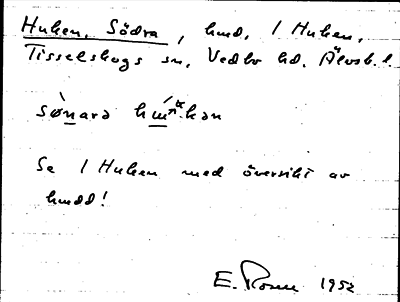 Huken, Södra, hmd, 1 Huken,
Tisselskogs sn, Vedbo hd, Älvsb. l.
sø̀nara
Se 1 Huken med översikt av
hmdd!
E. 1952